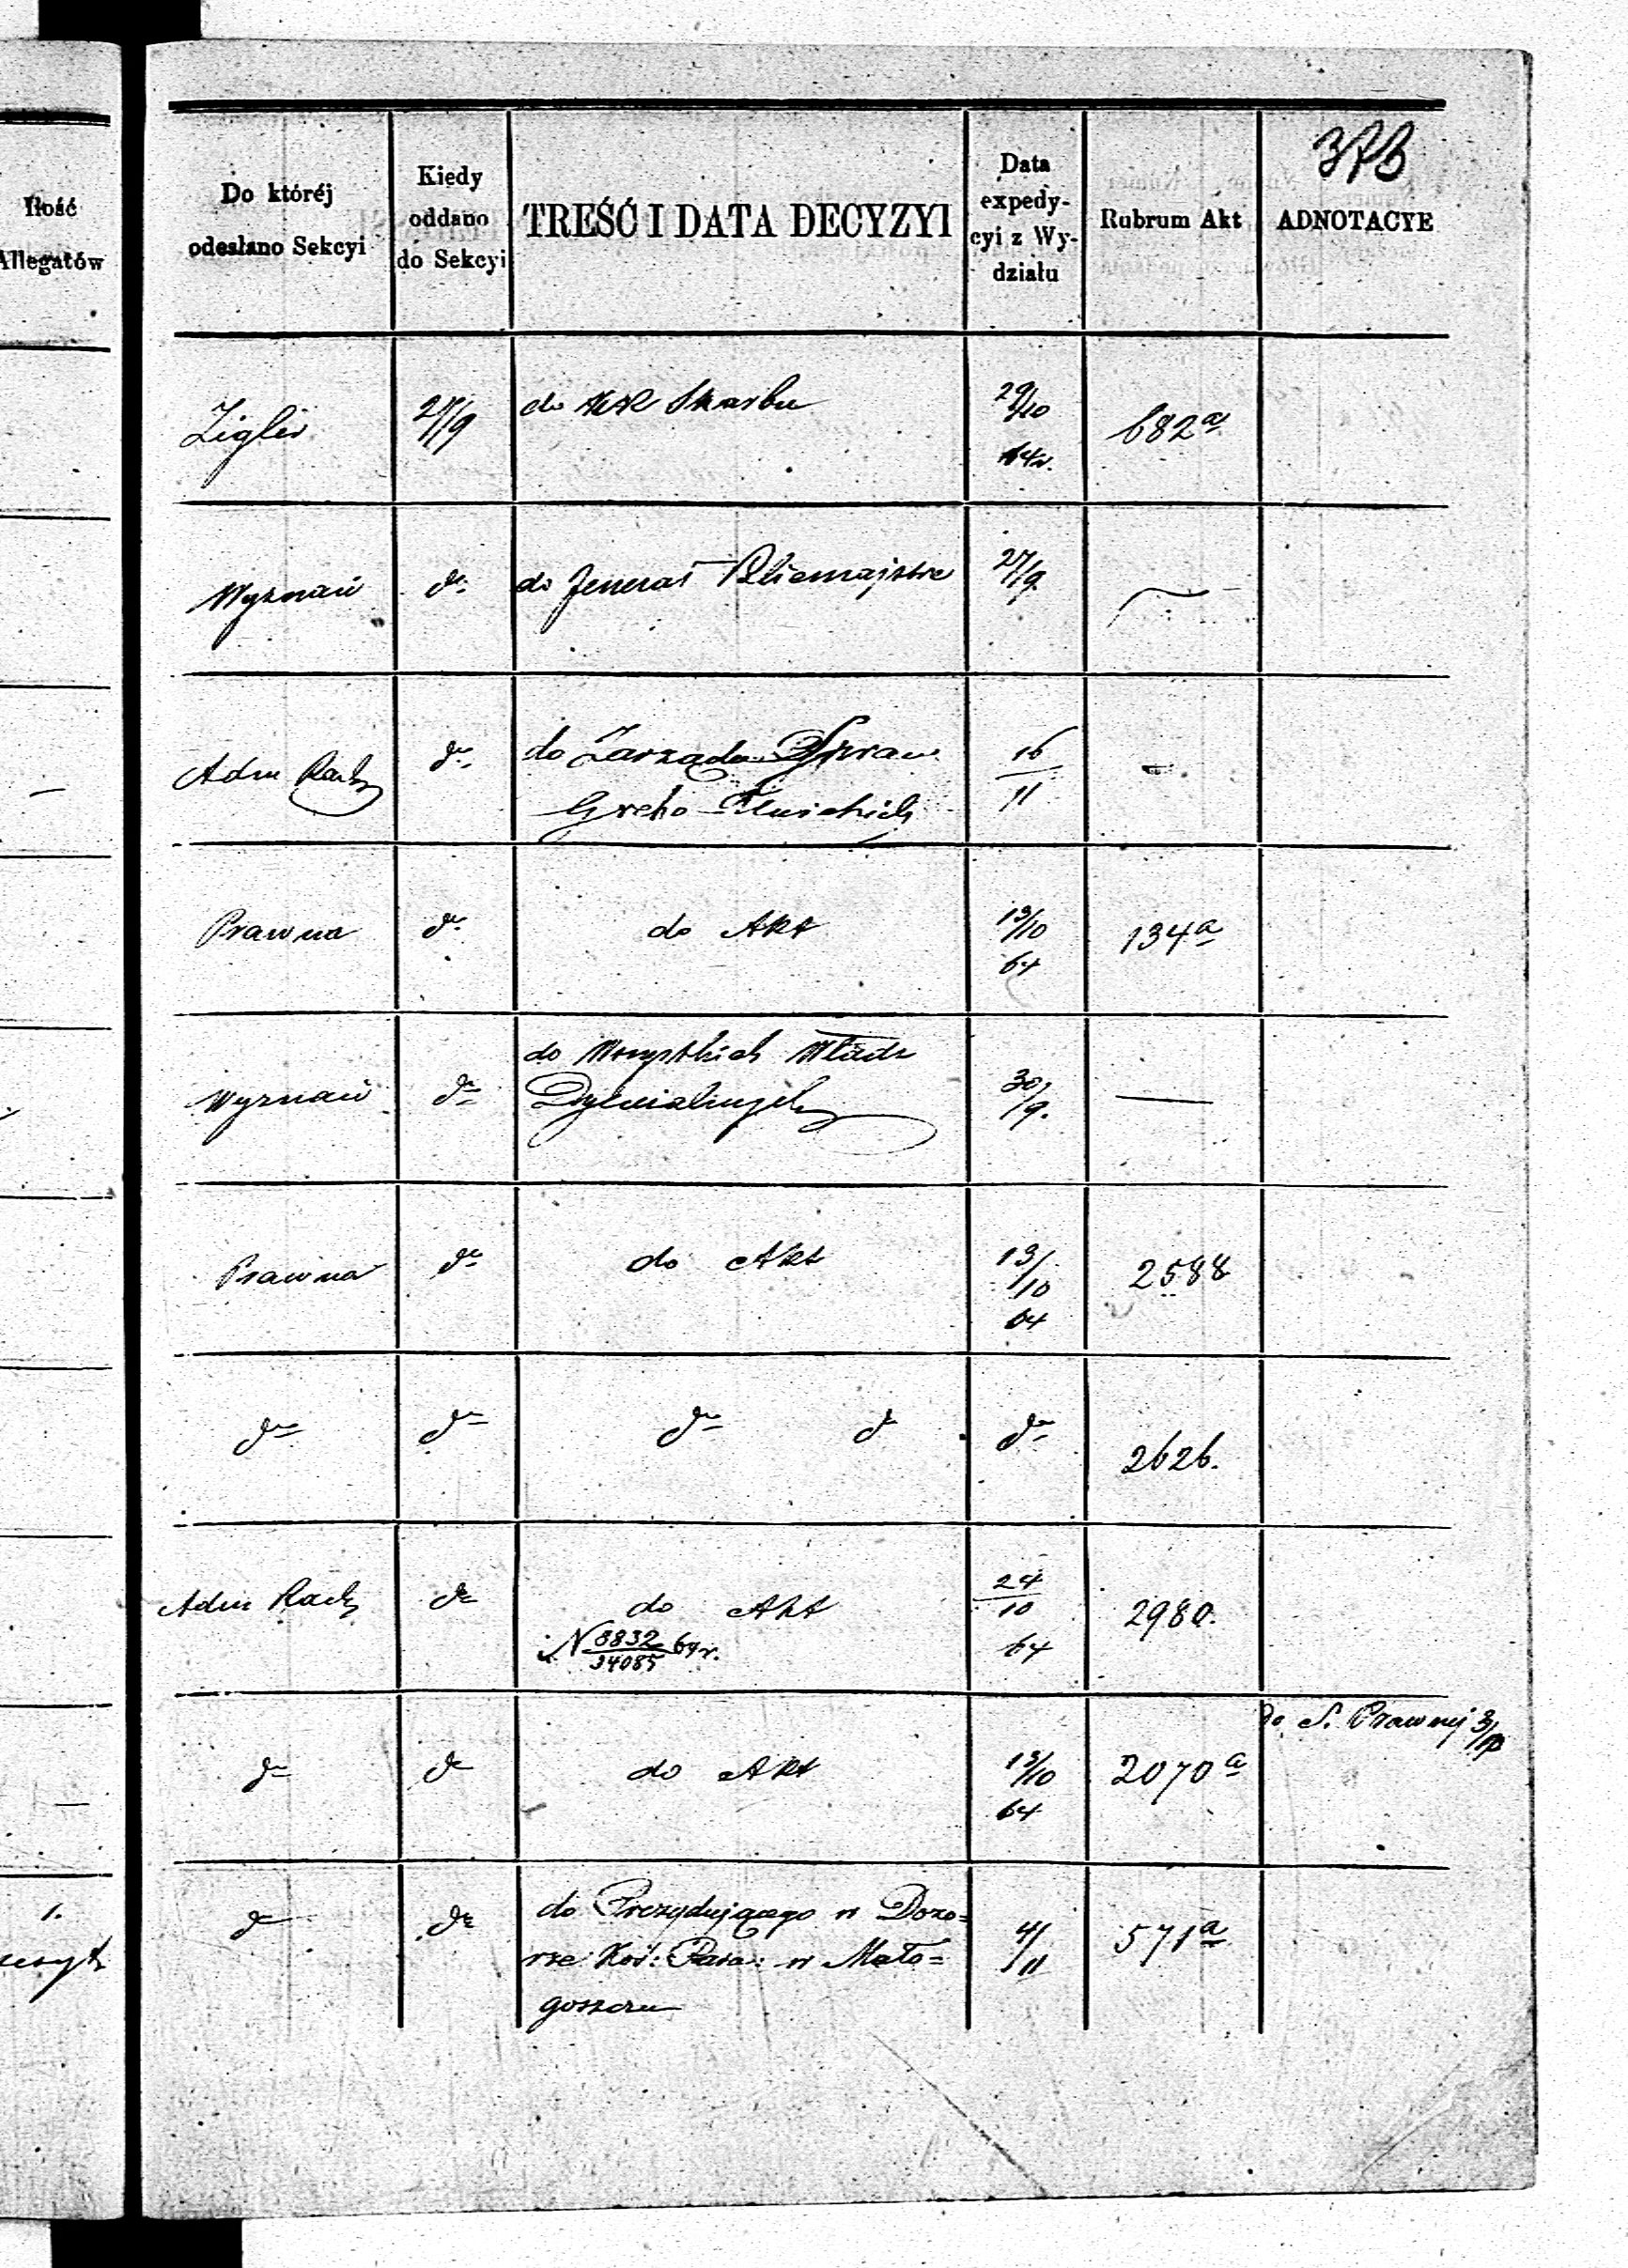 Ilość
Allegatów
Do któréj
odesłano Sekcyi
Kiedy
oddano
do Sekcyi
TREŚĆ I DATA DECYZYI
Data
expedy-
cyi z Wy-
działu
Rubrum Akt
ADNOTACYE
27/9
do Skarbu
29/10
64r.
682a
Wyznań
do
do Jenerał Policmajstra
27/9
Adm Rach
do
do Zarządu Spraw
Greko
16
11
Prawna
do
do Akt
13/10
64
134a
Wyznań
do
do Wszystkich Władz
30/9.
—
Prawna
do
do Akt
13/10
64
2588
do
do
do do
do
2626.
Adm Rach
do
do Akt
N 8832 64r.
34085
24
10
64
2980.
do
do
do Akt
13/10
64
2070a
do S. Prawnej
do
do
do Prezydującego w Dozo=
rze Koś: Para: w Mało=
goszczu
4/11
571a
1.